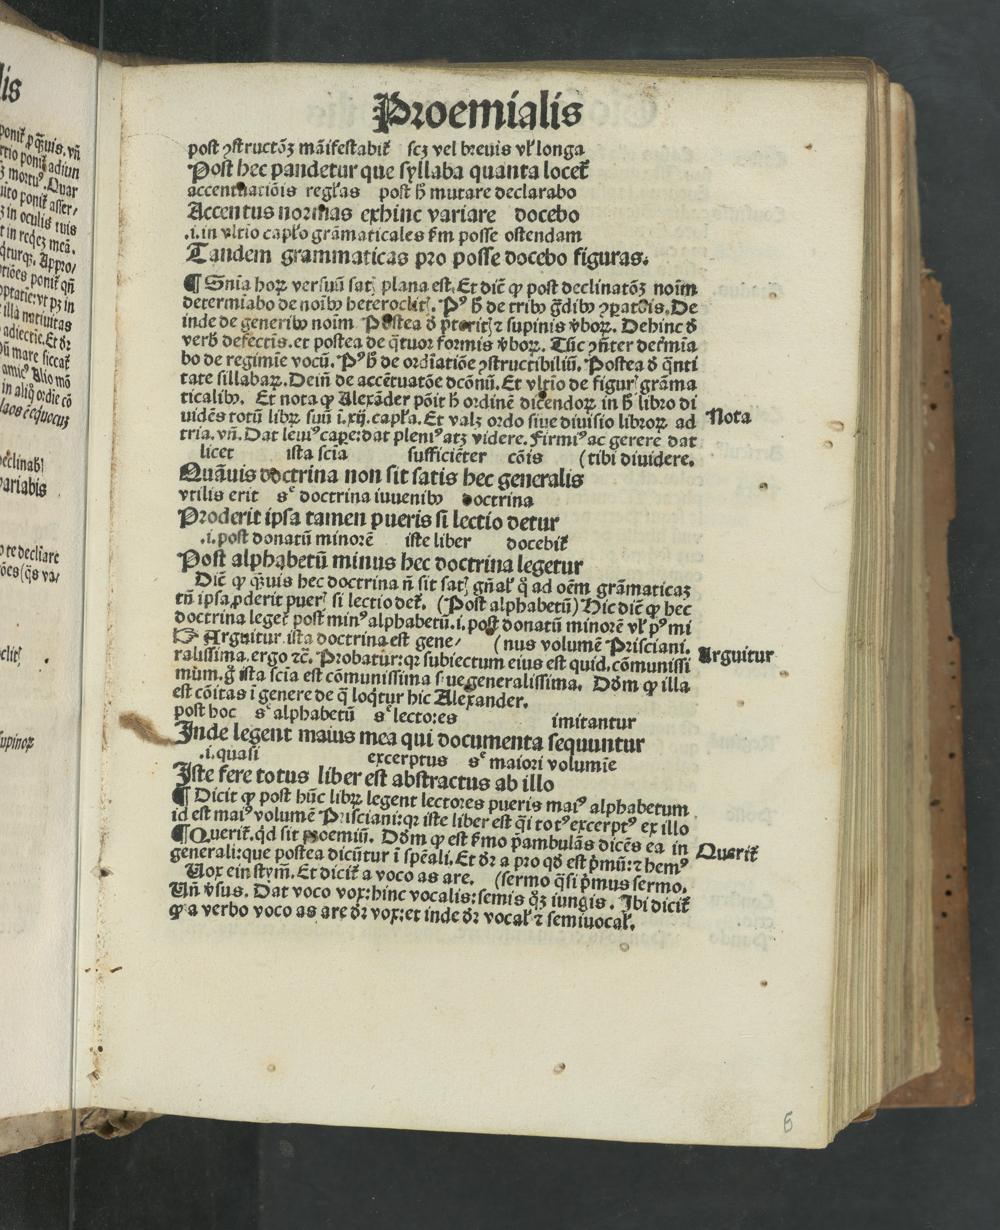 Proemialis
post ꝯstructōꝫ māifestabit᷑ scꝫ vel breuis vl̓ longa
Post hec pandetur que syllaba quanta locet᷑
accentuatiōis regl̓as post ħ mutare declarabo
Accentus normas exhinc variare docebo
.i. in vltio capl̓o grāmaticales ẜm posse ostendam
Tandem grammaticas pro posse docebo figuras.
¶ Snīa hoꝝ versuū satꝭ plana est. Et dic̄ ꝙ post declinatōꝫ noīm
determiabo de noībꝰ heteroclitꝭ. Pꝰ ħ de tribꝰ g̃dibꝰ ꝯꝑatōis. De
inde de generibꝰ noīm Postea ð p̄teritꝭ ⁊ supinis v̓boꝝ. Dehinc ð
verb̓ defectis. et postea de q̄tuor formis v̓boꝝ. Tūc ꝯn̄ter det̓mīa
bo de regimīe vocū. Pꝰ ħ de ordīatiōe ꝯstructibiliū. Postea ð q̄nti
tate sillabaꝝ. Dein̄ de accētuatōe dcōnū. Et vltīo de figurꝭ grāma
ticalibꝰ. Et nota ꝙ Alexāder pōit ħ ordinē dicendoꝝ in ħ libro di
uidēs totū libꝝ suū ī .xij. capl̓a. Et valꝫ ordo siue diuisio libroꝝ ad
Nota
tria. vn̄. Dat leuiꝰ capere: dat pleniꝰ atqꝫ videre. Firmiꝰ ac gerere dat
licet ista scia sufficiēter cōis (tibi diuidere.
Quāuis doctrina non sit satis hec generalis
vtilis erit sᶜ doctrina iuuenibꝰ doctrina
Proderit ipsa tamen pueris si lectio detur
.i. post donatū minorē iste liber docebit᷑
Post alphabetū minus hec doctrina legetur
Dic̄ ꝙ q̄uis hec doctrina n̄ sit satꝭ gn̄al̓ q̊ ad oēm grāmaticaꝫ
tn̄ ipsa ꝓderit puerꝭ si lectio det᷑. (Post alphabetū) Hic dic̄ ꝙ hec
doctrina leget᷑ post minꝰ alphabetū .i. post donatū minorē vl̓ pꝰ mi
☞ Arguitur. ista doctrina est gene⸗ (nus volumē Prisciani.
ralissima. ergo ⁊c̄. Probatur: qꝛ subiectum eius est quid. cōmunissi
Arguitur
mum. g̊ ista scia est cōmunissima siue generalissima. Dōm ꝙ illa
est cōitas ī genere de q̄ loqt᷑ur hic Alexander.
post hoc sᶜ alphabetū sᶜ lectores imitantur
Inde legent maius mea qui documenta sequuntur
.i. quasi excerptus sᶜ maiori volumīe
Iste fere totus liber est abstractus ab illo
¶ Dicit ꝙ post hūc libꝝ legent lectores pueris maiꝰ alphabetum
id est maiꝰ volumē Prisciani: qꝛ iste liber est q̄i totꝰ excerptꝰ ex illo
¶ Querit᷑. qd̓ sit proemiū. Dōm ꝙ est ẜmo p̄ambulās dicēs ea in
Querit᷑
generali: que postea dicūtur ī spēali. Et dr̄ a pro qd̓ est p̓mū: ⁊ hemꝰ
Vox ein stym̄. Et dicit᷑ a voco as are. (sermo q̄si p̓mus sermo.
Vn̄ v̓sus. Dat voco vox: hinc vocalis: semis qꝫ iungis. Ibi dicit᷑
ꝙ a verbo voco as are dr̄ vox: et inde dr̄ vocal̓ ⁊ semiuocal̓.
6